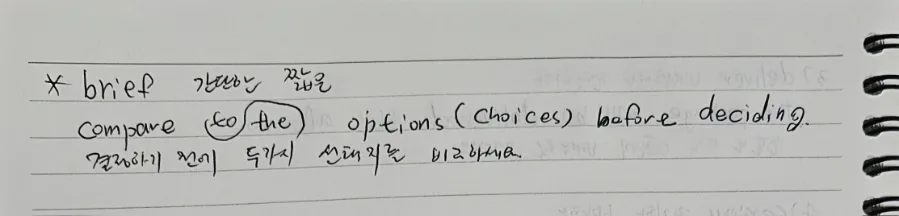 * brief 간단한 짧은
compare to the options (choices) before deciding.
결정하기 전에 두가지 선택지를 비교하세요.